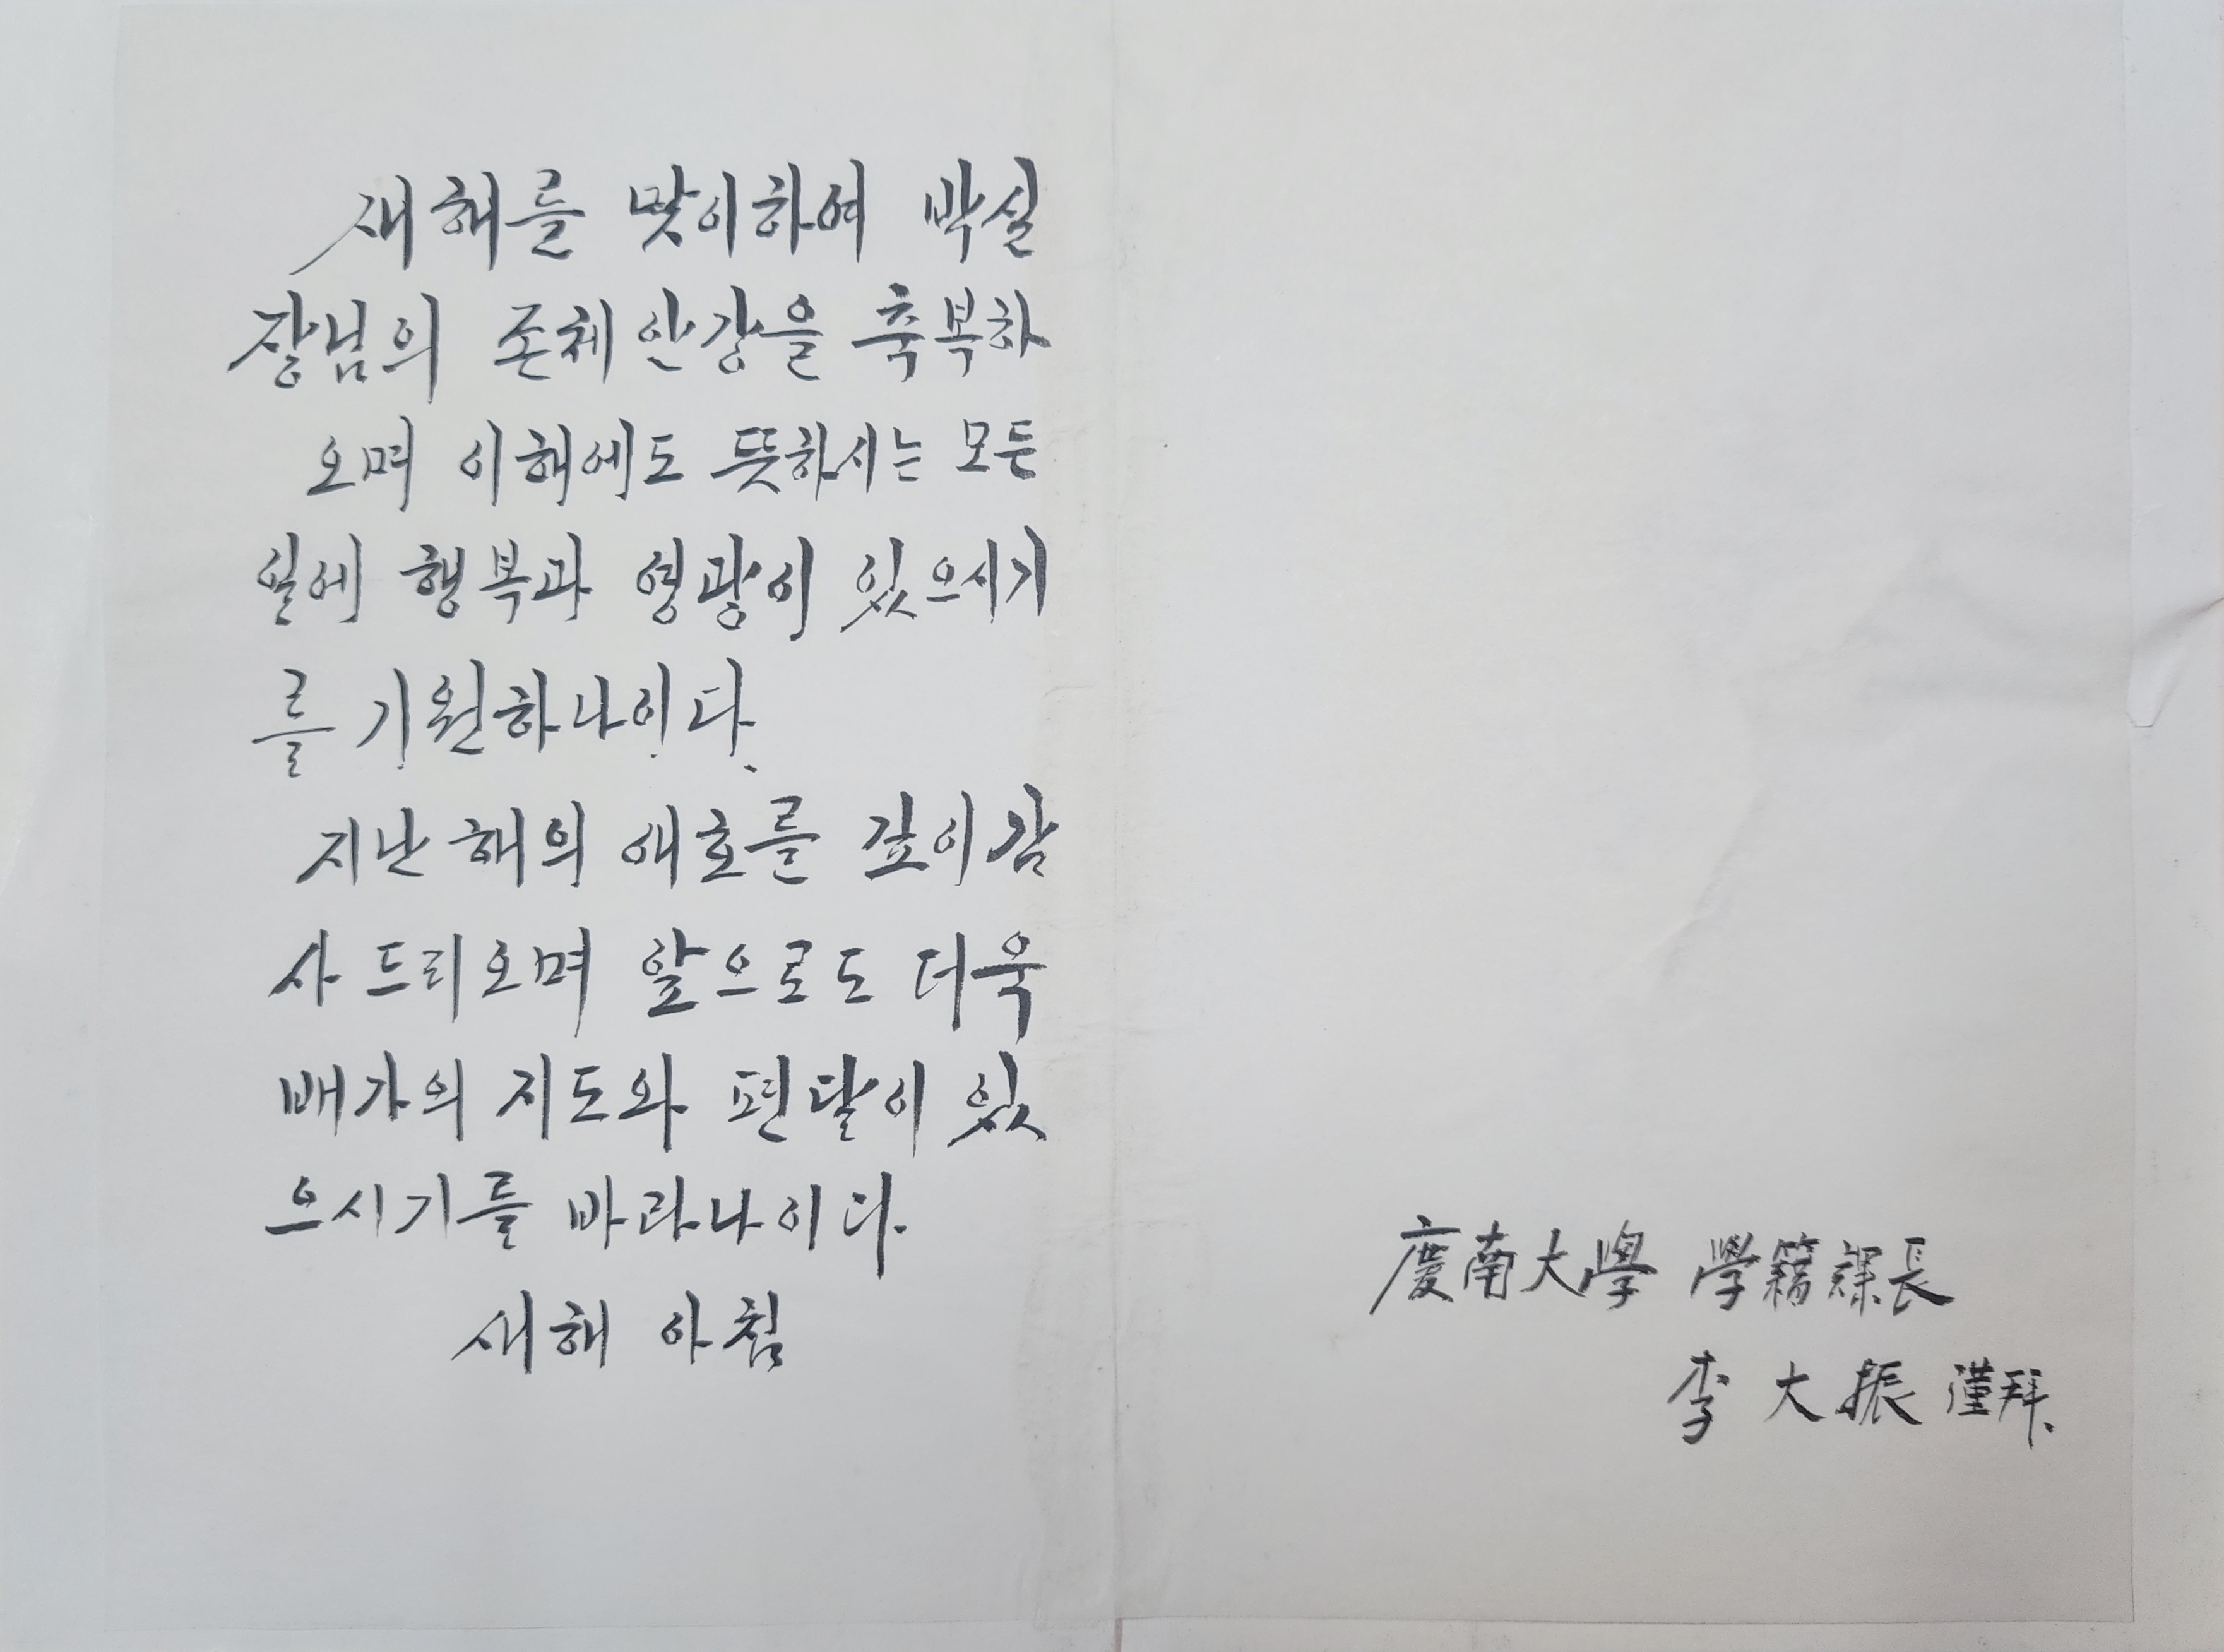 새해를 맞이하여 박실
장님의 존체안강을 축복하
오며 이해에도 뜻하시는 모든
일에 행복과 영광이 있으시기
를 기원하나이다.
지난 해의 애호를 깊이 감
사드리오며 앞으로도 더욱
배가의 지도와 편달이 있
으시기를 바라나이다.
새해 아침
慶南大學 學籍課長
李大振 謹拜.